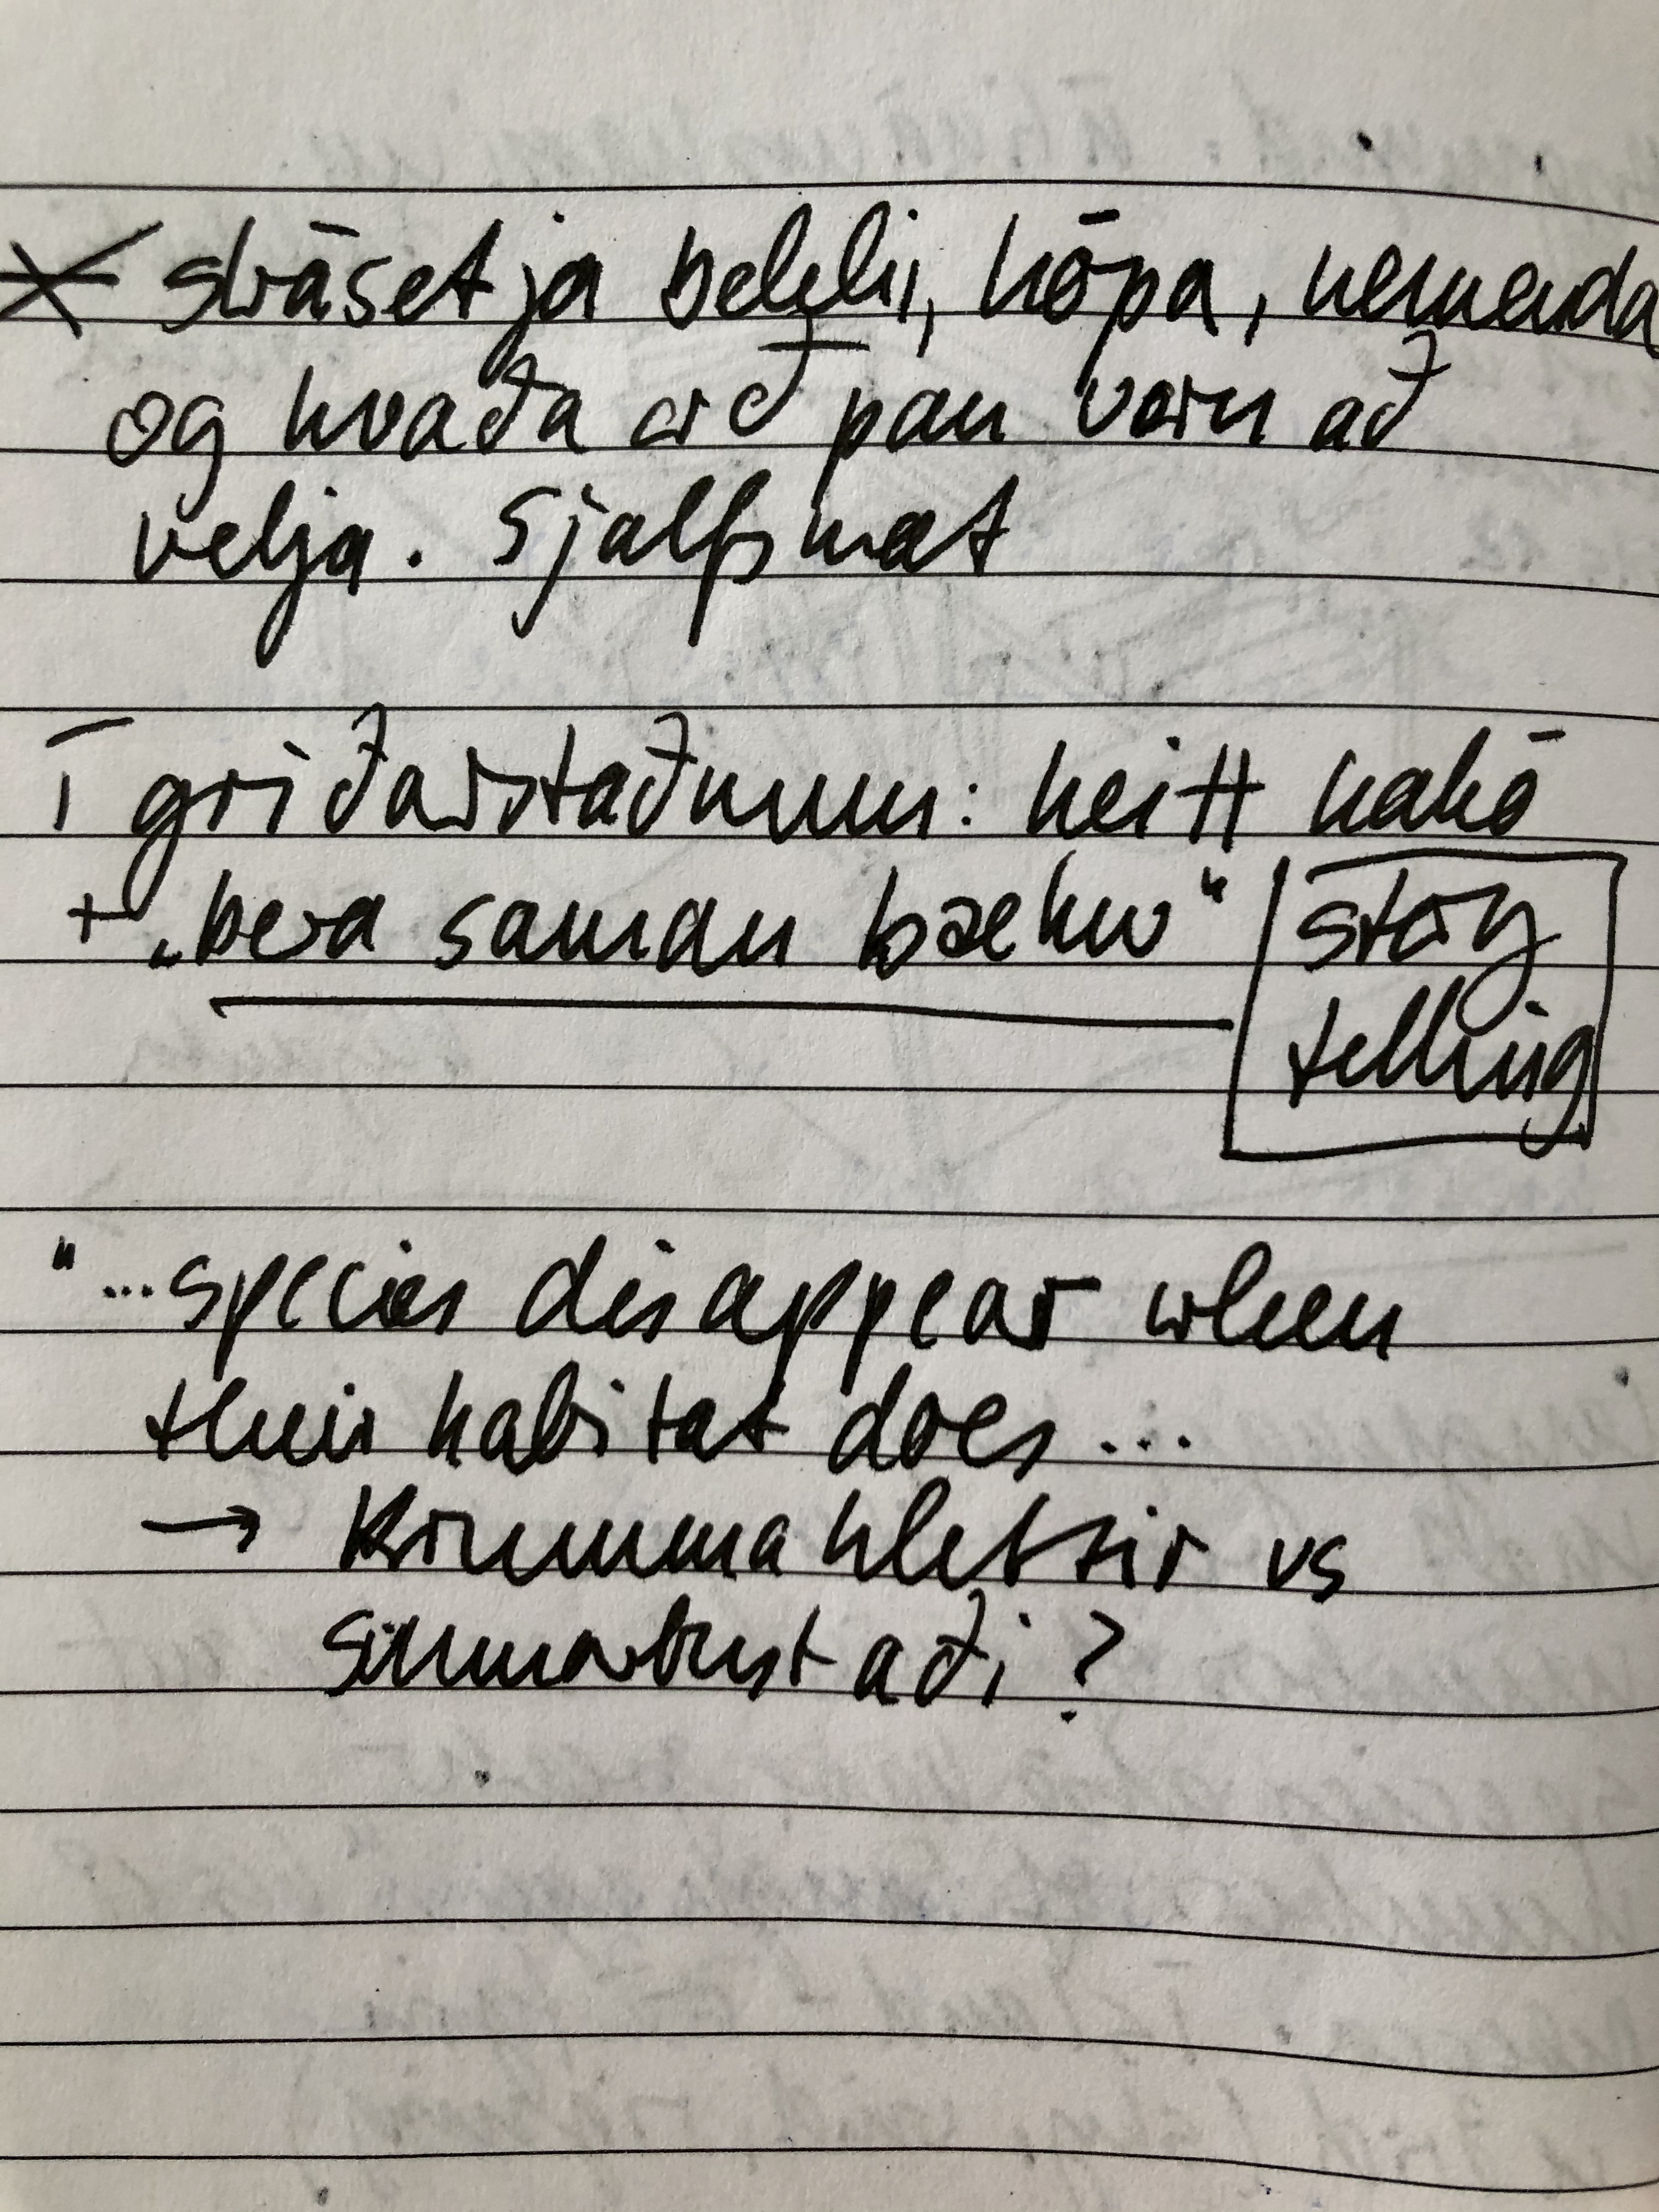 skrásetja bekki, hópa, nemenda
og hvaða orð þau voru að
velja. sjálfsmat
Í griðarstaðnum: heitt kakó
+ „bera saman bækur“
story
telling
"...species disappear when
their habitat does...
→ Krummaklettar vs
sumarbústaði?